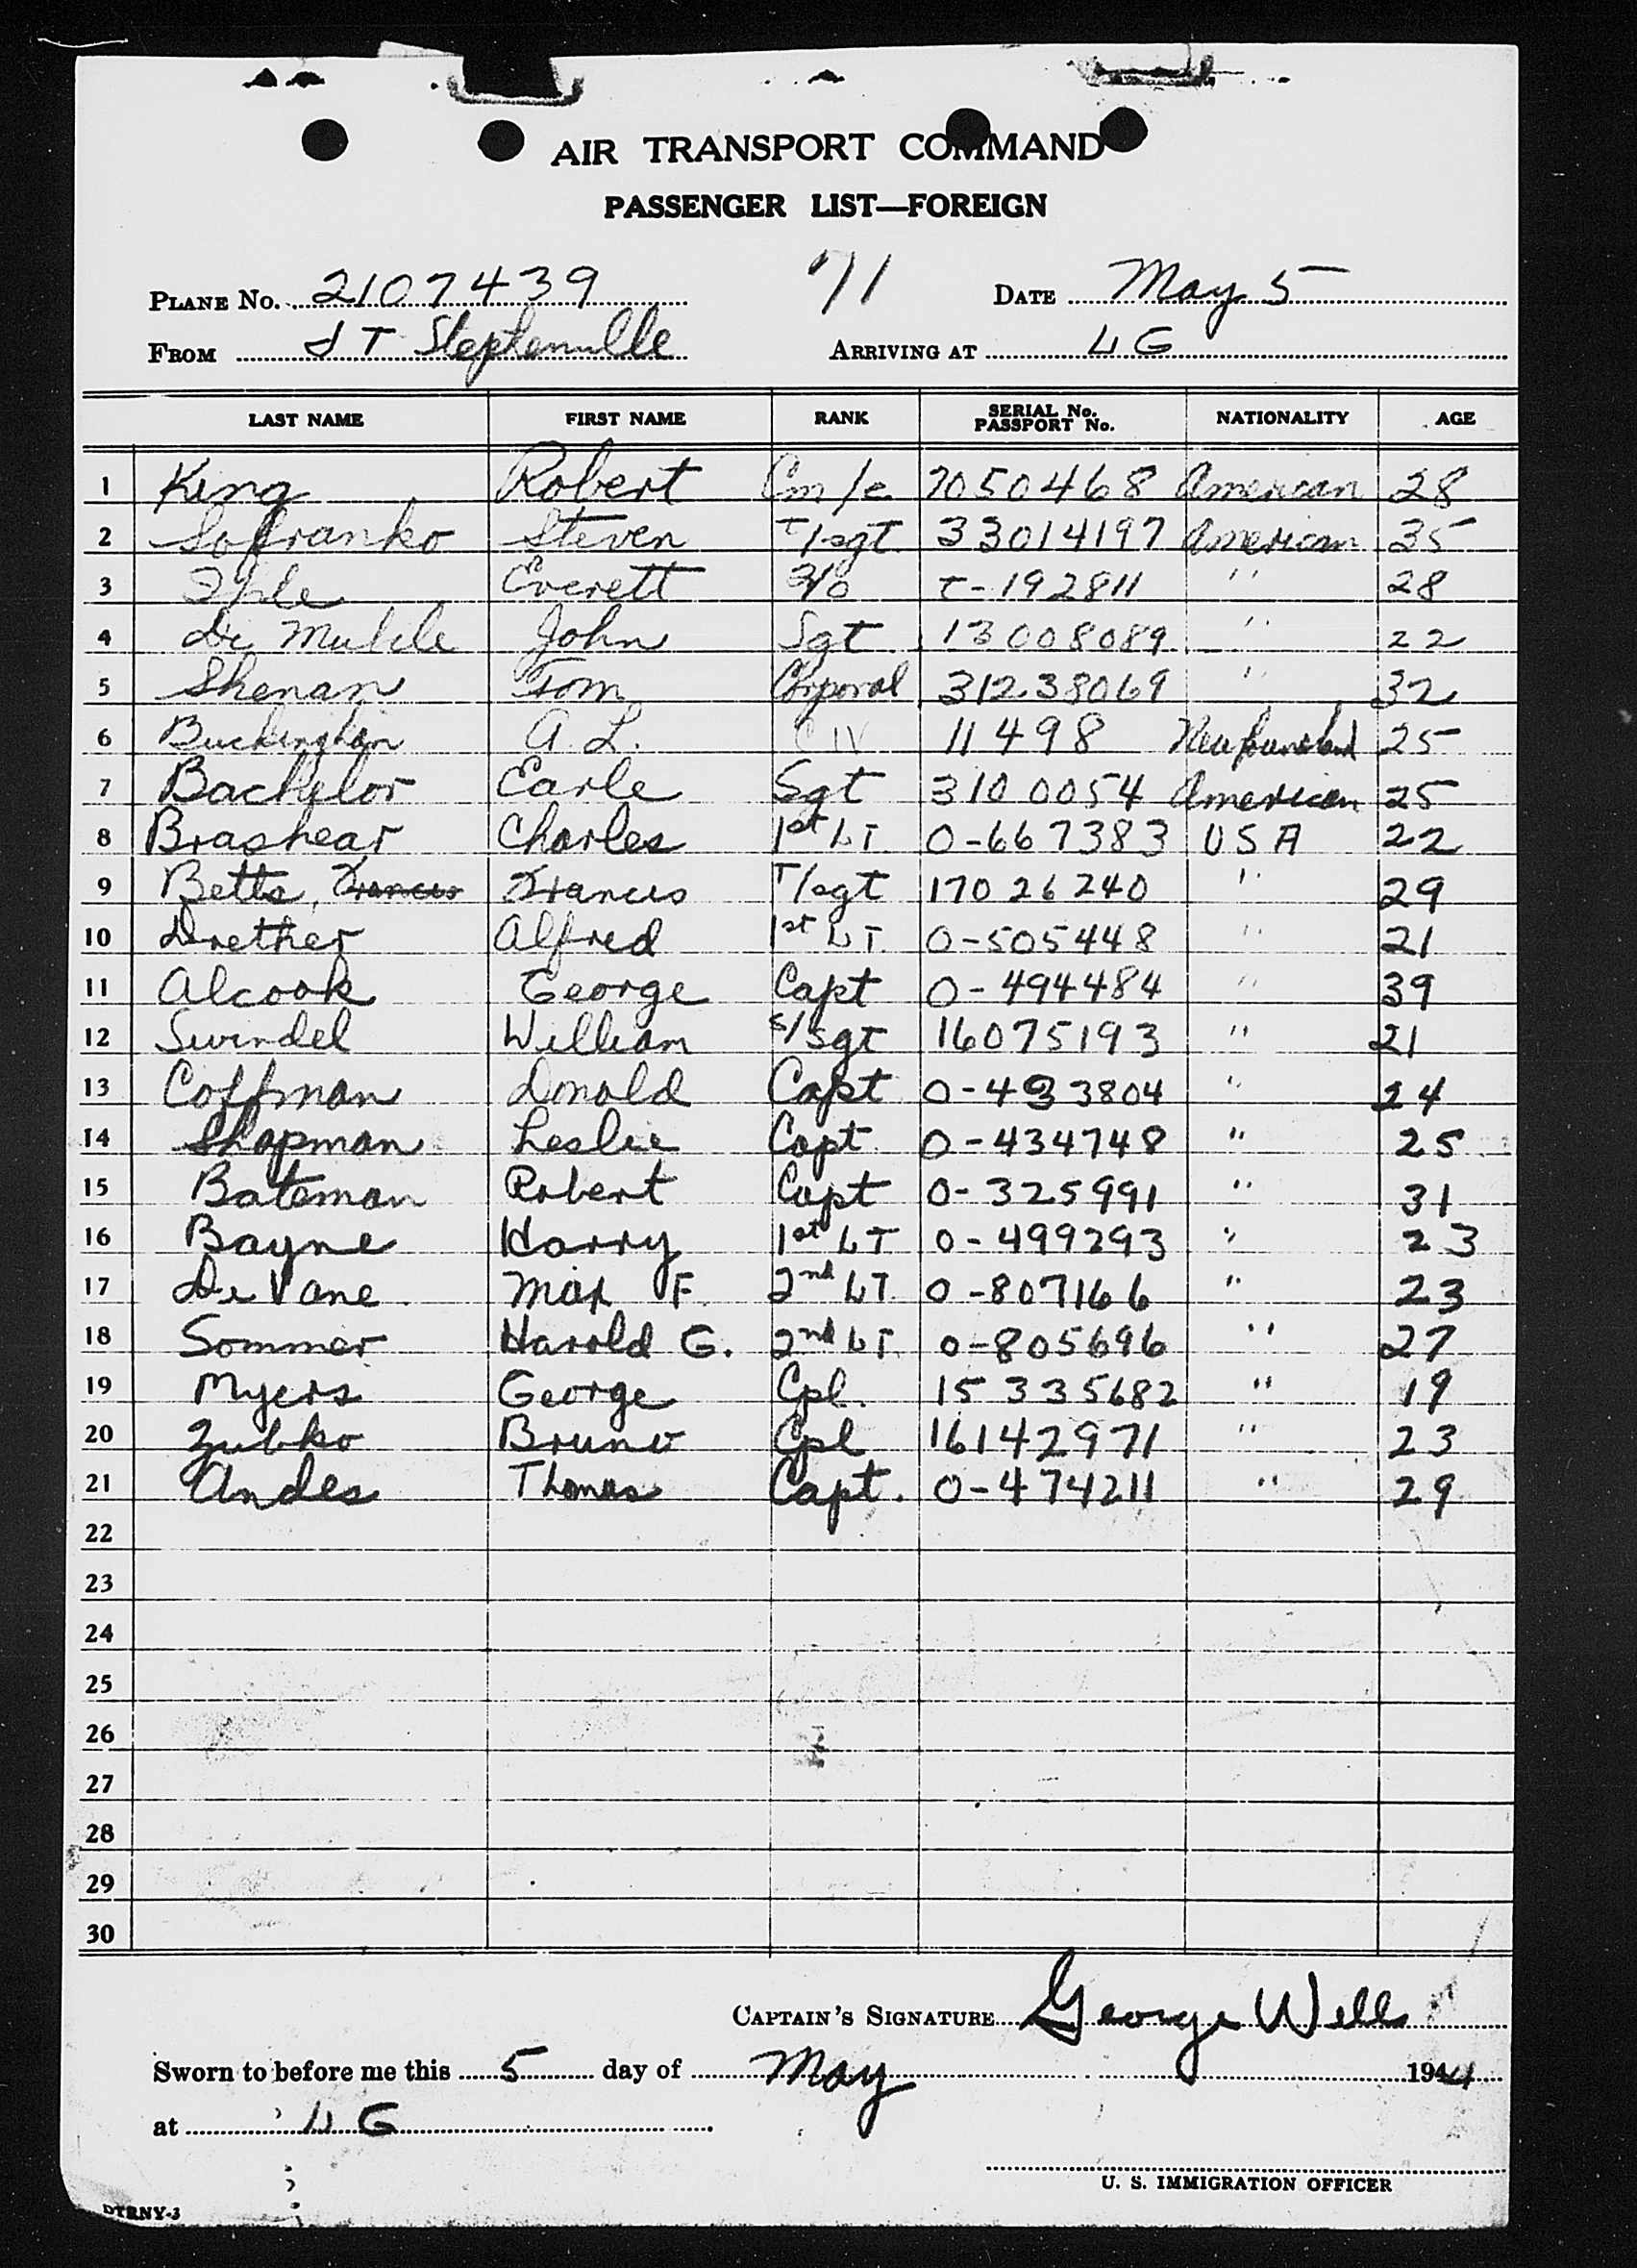 AIR TRANSPORT COMMAND
PASSENGER LIST—FOREIGN
71
PLANE No. 2107439 DATE May 5
FROM Stephenville ARRIVING AT LG
LAST NAME FIRST NAME RANK SERIAL No. PASSPORT No. NATIONALITY AGE
1 King Robert Cm/c 7050468 American 28
2 Sofranko Steven T/sgt 33014197 American 35
3 Everett T-192811 " 28
4 De John Sgt 13008089 " 22
5 Shenan Tom Corporal 31238069 " 32
6 Buckingham A. L. CIV 11498 Newfoundland 25
7 Bachelor Earle Sgt 3100054 American 25
8 Brashear Charles 1st LT 0-667383 USA 22
9 Betts, Francis Francis T/sgt 17026240 " 29
10 Drether Alfred 1st LT 0-505448 " 21
11 Alcook George Capt 0-494484 " 39
12 Swindel William S/Sgt 16075193 " 21
13 Coffman Donald Capt 0-433804 " 24
14 Shapman Leslie Capt 0-434748 " 25
15 Bateman Robert Capt 0-325991 " 31
16 Bayne Harry 1st LT 0-499293 " 23
17 De Vane Max F. 2nd LT 0-807166 " 23
18 Sommer Harold G. 2nd LT 0-805696 " 27
19 Myers George Cpl. 15335682 " 19
20 Zubko Bruno Cpl 16142971 " 23
21 Andes Thomas Capt. 0-474211 " 29
22
23
24
25
26
27
28
29
30
CAPTAIN'S SIGNATURE George Wells
Sworn to before me this 5 day of May 1944
at LG
U. S. IMMIGRATION OFFICER
DTRNY-3